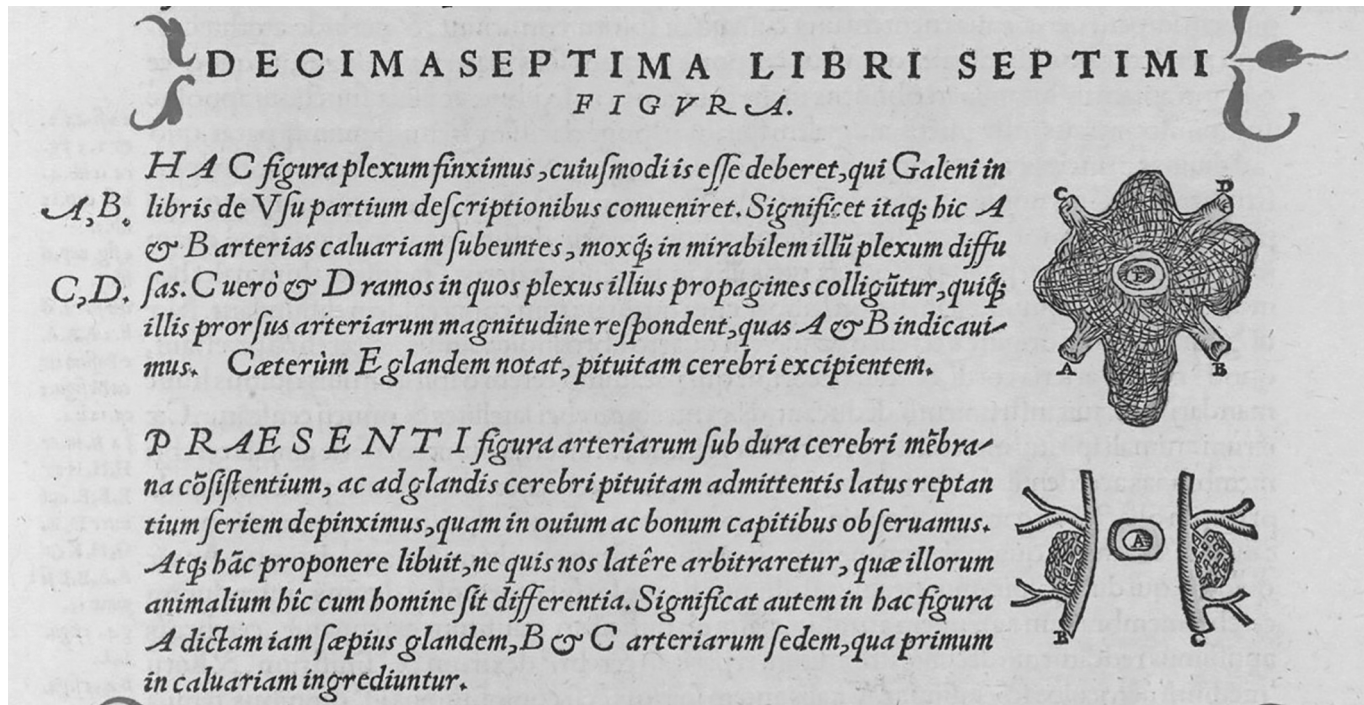 DECIMASEPTIMA LIBRI SEPTIMI
FIGVRA.
HAC figura plexum finximus, cuiuſmodi is eſſe deberet, qui Galeni in
A, B. libris de Vſu partium deſcriptionibus conueniret. Significet itaq; hic A
& B arterias caluariam ſubeuntes, moxq́; in mirabilem illũ plexum diffu
C, D. ſas. C uerò & D ramos in quos plexus illius propagines colligũtur, quiq́;
illis prorſus arteriarum magnitudine reſpondent, quas A & B indicaui-
mus. Cæterùm E glandem notat, pituitam cerebri excipientem.
C D
E
A B
PRAESENTI figura arteriarum ſub dura cerebri mẽbra-
na cõſiſtentium, ac ad glandis cerebri pituitam admittentis latus reptan
tium ſeriem depinximus, quam in ouium ac bonum capitibus obſeruamus.
Atq; hãc proponere libuit, ne quis nos latêre arbitraretur, quæ illorum
animalium hîc cum homine ſit differentia. Significat autem in hac figura
A dictam iam ſæpius glandem, B & C arteriarum ſedem, qua primum
in caluariam ingrediuntur.
A
B C